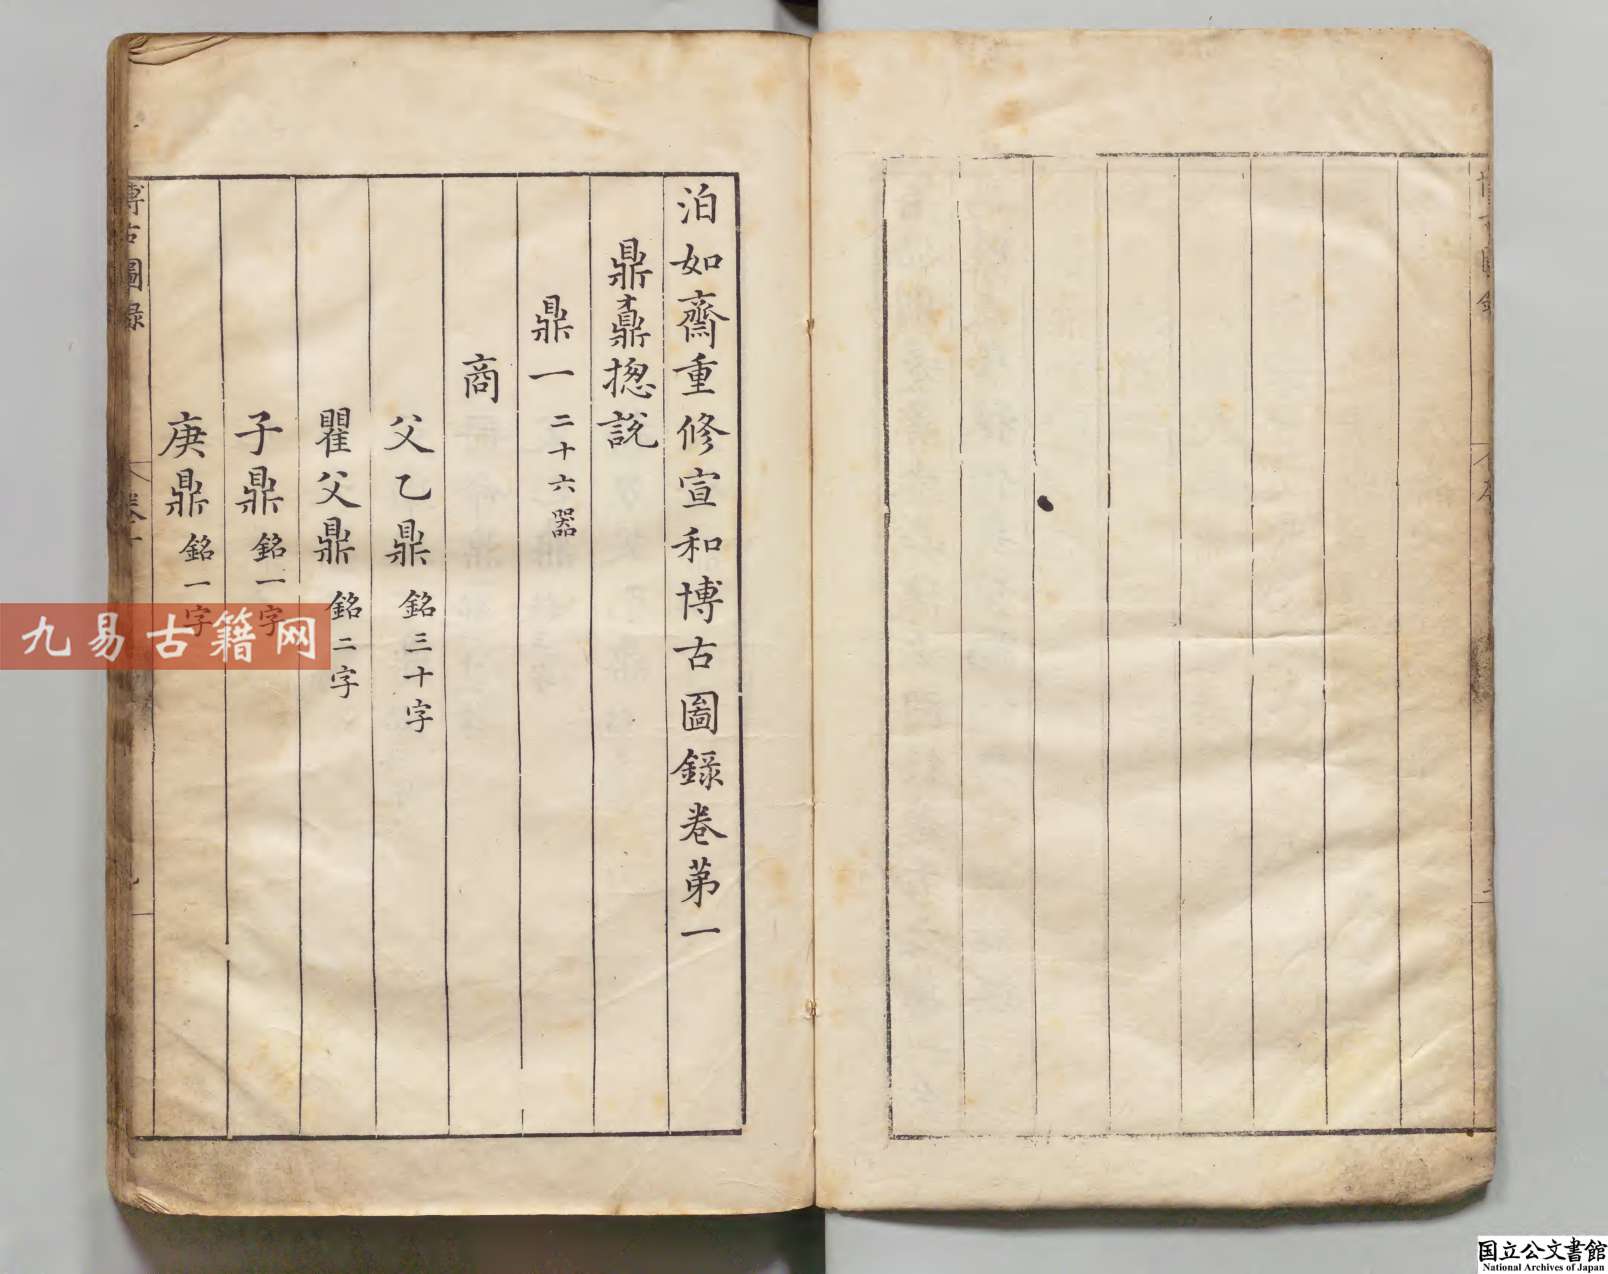 泊如齋重修宣和博古圖錄卷第一
鼎鼒揔說
鼎一 二十六器
商
父乙鼎 銘三十字
瞿父鼎 銘二字
子鼎 銘一字
庚鼎 銘一字
博古圖錄
九易古籍网
国立公文書館
National Archives of Japan